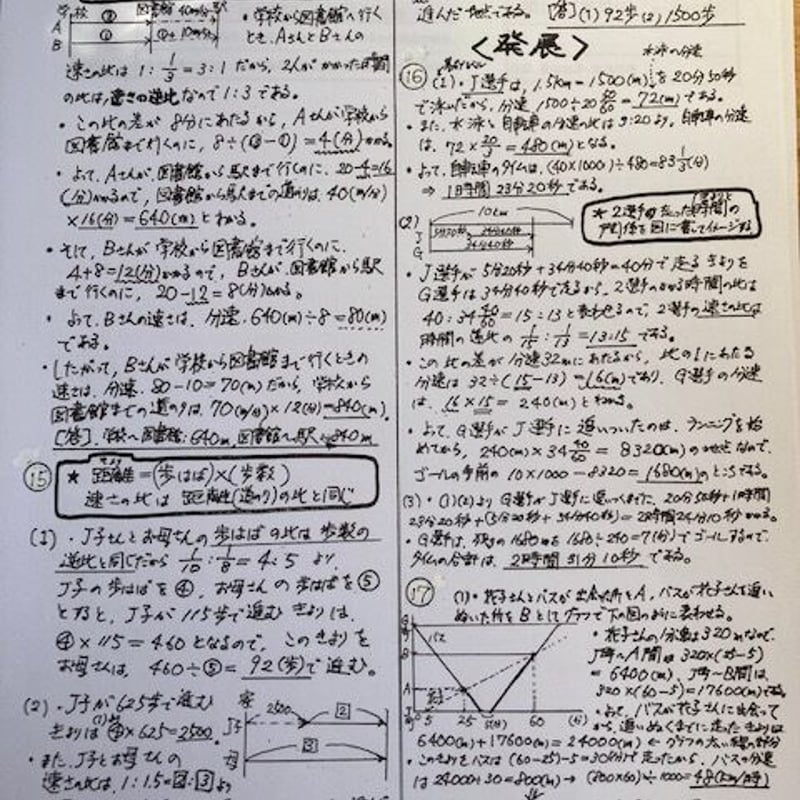 学校 ③ 図書館 40m/分 駅
A
B
① ①+10m/分
・学校から図書館へ行く
とき、AさんとBさんの
速さの比は 1:1/3=3:1 だから、2人がかかった時間
の比は、速さの逆比なので1:3である。
・この比の差が 8分にあたるから、Aさんが学校から
図書館まで行くのに、8÷(③-①)=4(分)かかる。
・よって、Aさんが、図書館から駅まで行くのに、20-4=16
(分)かかるので、図書館から駅までの道のりは、40(m/分)
×16(分)=640(m)とわかる。
・そして、Bさんが 学校から図書館まで行くのに、
4+8=12(分)かかるので、Bさんが、図書館から駅
まで行くのに、20-12=8(分)かかる。
・よって、Bさんの速さは、分速、640(m)÷8=80(m)
である。
・したがって、Bさんが 学校から図書館まで行くときの
速さは、分速、80-10=70(m)だから、学校から
図書館までの道のりは、70(m/分)×12(分)=840(m)
[答]、学校〜図書館:640m、図書館〜駅 840m
⑮ ★ 距離=(歩はば)×(歩数)
速さの比は 距離(道のり)の比と同じ
(1)・J子さんとお母さんの歩はばの比は 歩数の
逆比と同じだから 1/10:1/8=4:5 より、
J子の歩はばを④、お母さんの歩はばを⑤
とすると、J子が115歩で進むきょりは、
④×115=460となるので、このきょりを
お母さんは、460÷⑤=92(歩)で進む。
(2)・J子が625歩で進む
きょりは ④×625=2500、
・また、J子とお母さんの
速さの比は、1:1.5=2:3より
2500 2
J子
3
進んだ地点である。 [答](1)92歩(2)1500歩
<発展>
水泳の分速
⑯(1)・J選手は、1.5km=1500(m)を20分50秒
で泳いだから、分速 1500÷20 50/60=72(m)である。
・また、水泳と自転車の分速の比は3:20より、自転車の分速
は、72×20/3=480(m)となる。
・よって、自転車のタイムは、(40×1000)÷480=83 1/3(分)
⇒ 1時間23分20秒である。
★2選手の走った時間の
関係を図に書いてイメージする
(2)
10km
J 5分20秒 34分40秒
G 34分40秒
・J選手が 5分20秒+34分40秒=40分で走るきょりを
G選手は34分40秒で走るから、2選手のかかる時間の比は
40:34 40/60=15:13と表わせるので、2選手の速さの比は
時間の逆比の 1/15:1/13=13:15である。
・この比の差が 分速32mにあたるから、比の1にあたる
分速は 32÷(15-13)=16(m)であり、G選手の分速
は、16×15=240(m)とわかる。
・よって、G選手がJ選手に追いついたのは、ランニングを始
めてから、240(m)×34 40/60=8320(m)の地点なので、
ゴールの手前の 10×1000-8320=1680(m)のところである。
(3)・(1)(2)より G選手がJ選手に追いつくまでに、20分50秒+1時間
23分20秒+(5分20秒+34分40秒)=2時間24分10秒かかる。
・G選手は、残りの1680mを 1680÷240=7(分)でゴールするので、
タイムの合計は、2時間31分10秒である。
⑰ (1)・花子さんとバスが出会った所をA、バスが花子さんを追い
ぬいた所をBとしてグラフで下の図のように表わせる。
バス
B
A
5 25 60 (分)
・花子さんの分速は320mなので、
J町〜A間は 320×(25-5)
=6400(m)、J町〜B間は、
320×(60-5)=17600(m)である。
・よって、バスが花子さんに出会って
から、追いぬくまでに走ったきょりは
6400(m)+17600(m)=24000(m) ← グラフの太い線の部分
・このきょりをバスは (60-25)-5=30(分)で走ったから、バスの分速
は 24000÷30=800(m) → (800×60)÷1000=48(km/時)